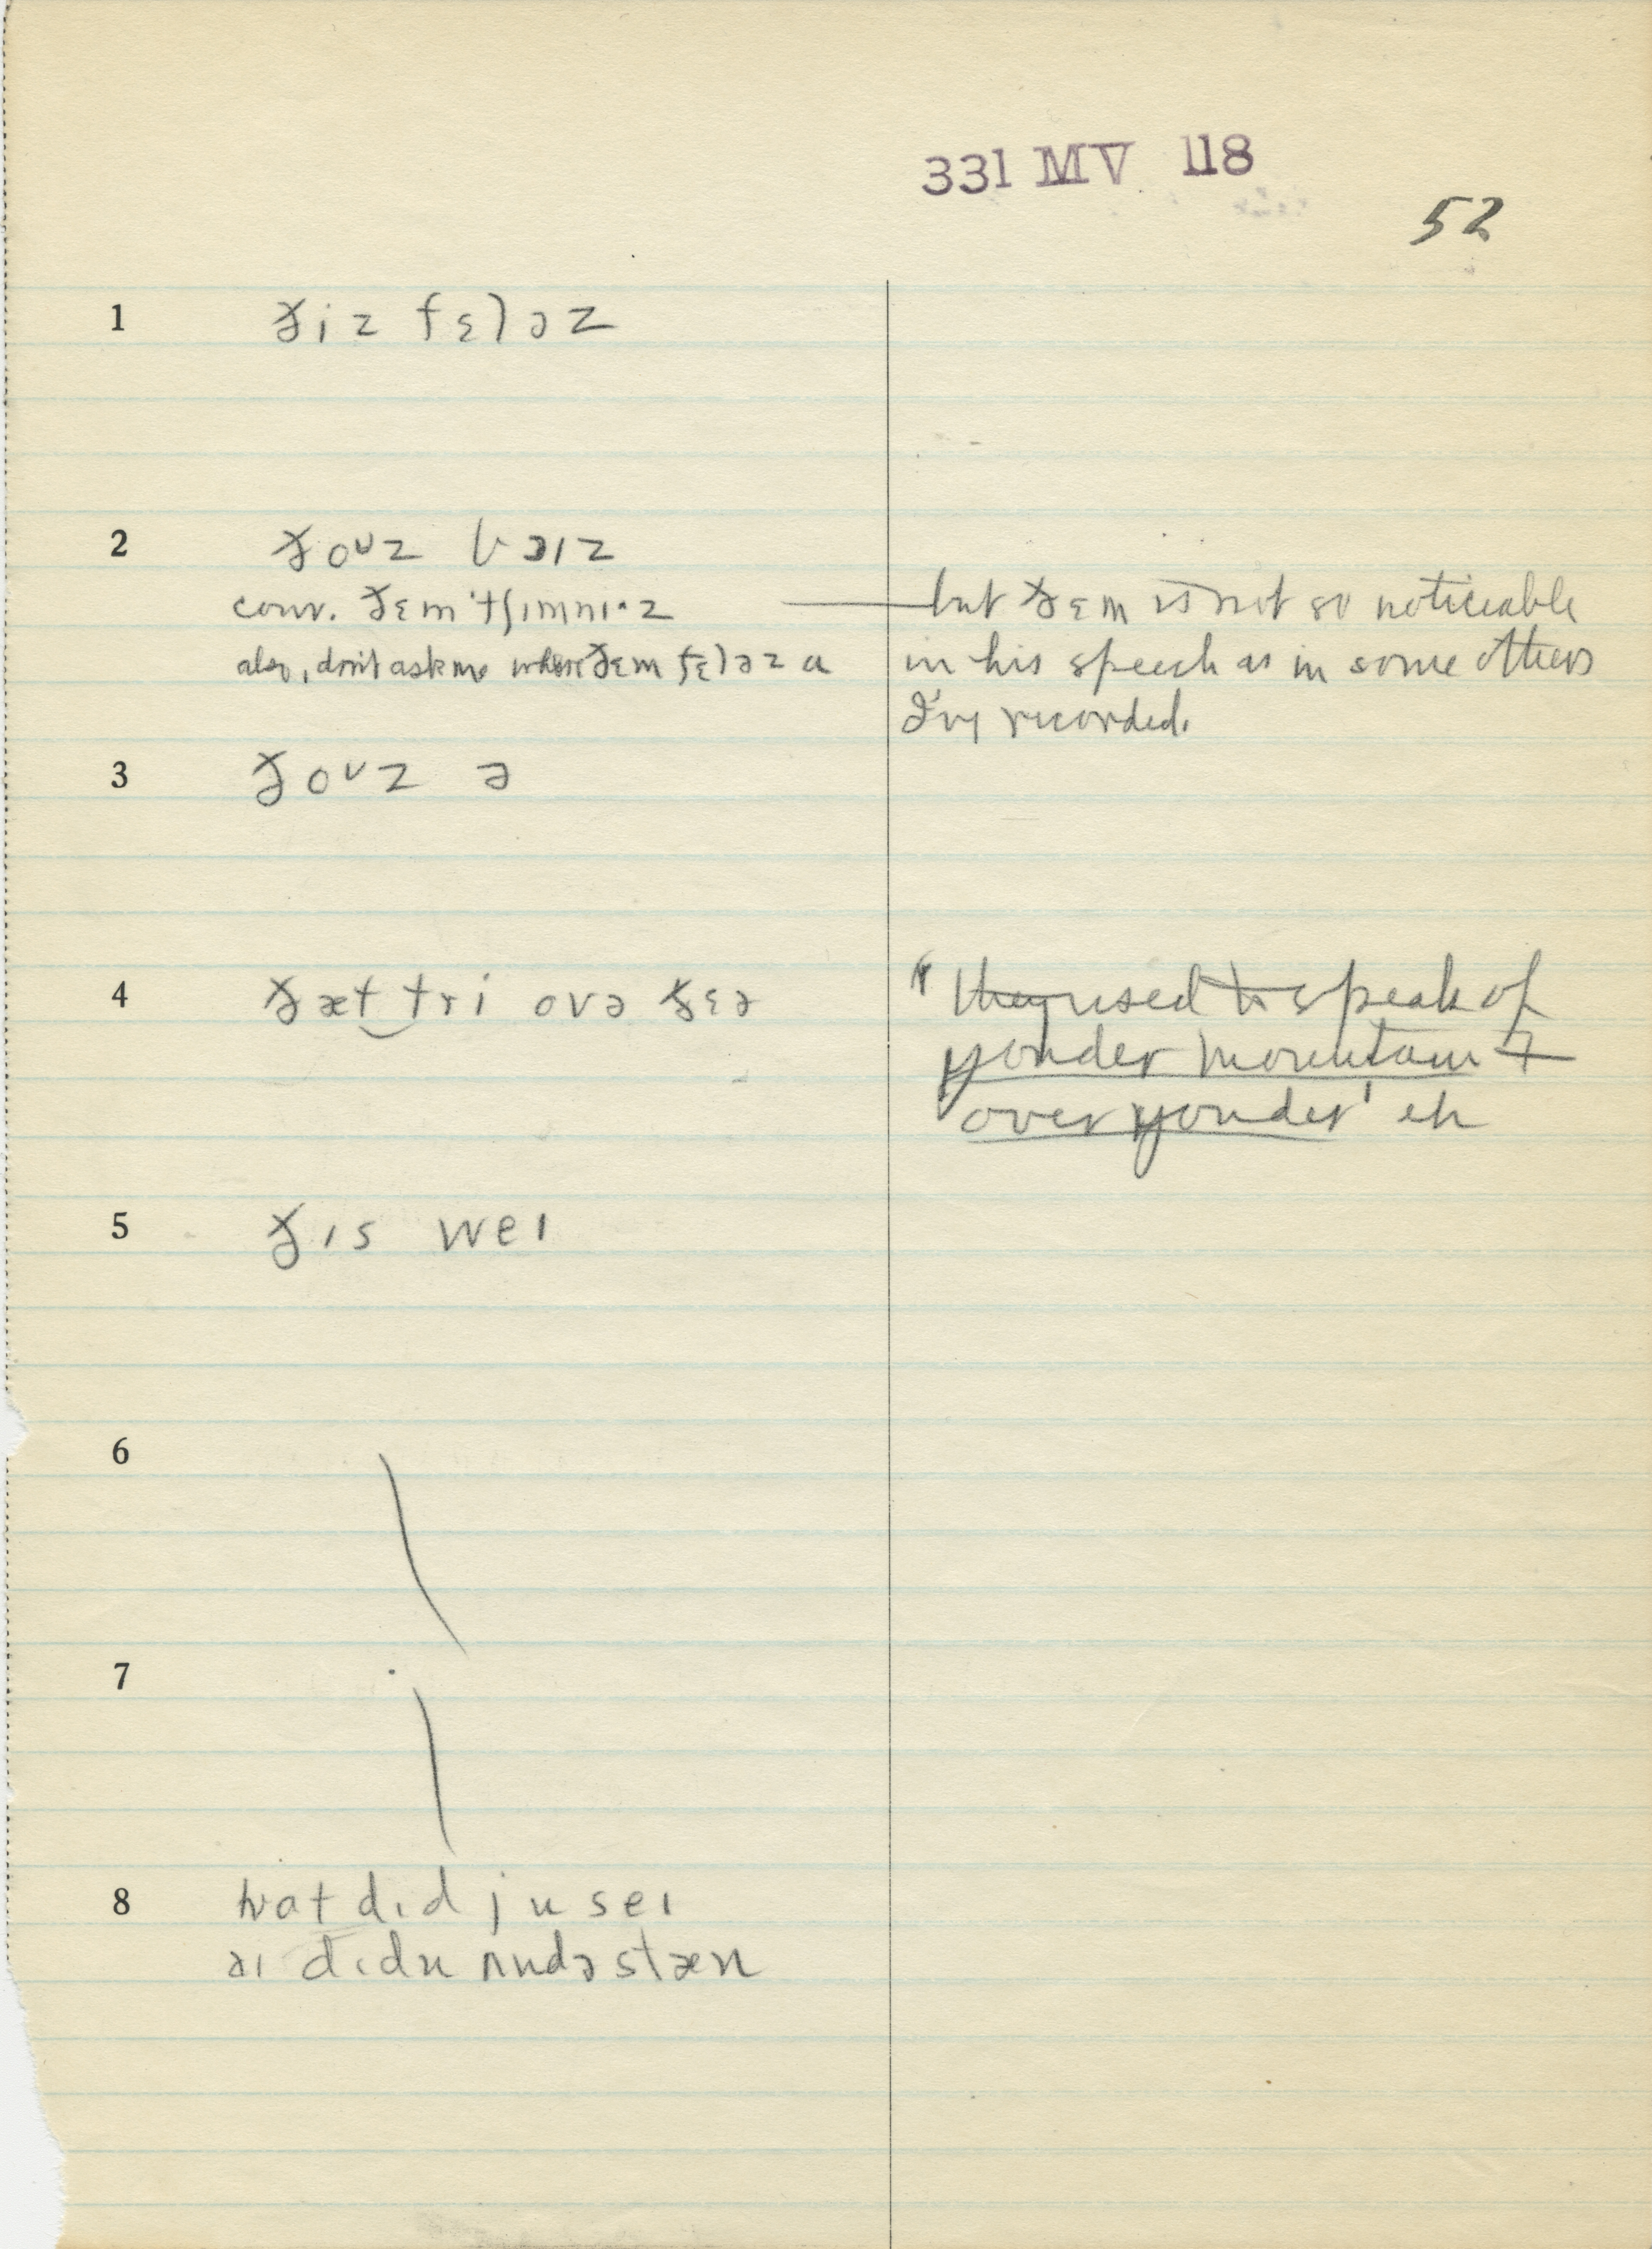 331 MV 118
52
1 ðiz fɛləz
2 ðoʊz bɔɪz
conv. ðɛm 'tʃɪmnɪ·z — but ðɛm is not so noticeable
also, don't ask me where ðɛm fɛləz a in his speech as in some others
I've recorded.
3 ðoʊz ə
4 ðæt tri ovə ðɛə "they used to speak of
yonder mountain &
over yonder' eh
5 ðɪs weɪ
6
7
8 hwat dɪd ju seɪ
aɪ dɪdn ʌndəstæn